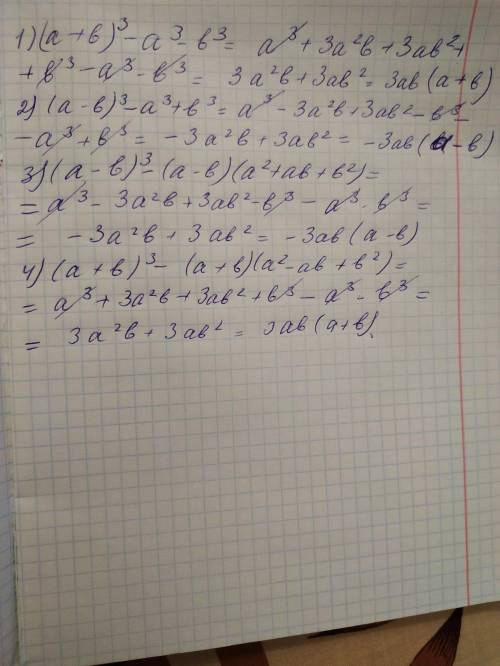 1) (a+b)³-a³-b³= a³+3a²b+3ab²+
+b³-a³-b³= 3a²b+3ab²=3ab(a+b)
2) (a-b)³-a³+b³=a³-3a²b+3ab²-b³-
-a³+b³=-3a²b+3ab²=-3ab(a-b)
3) (a-b)³-(a-b)(a²+ab+b²)=
=a³-3a²b+3ab²-b³-a³-b³=
= -3a²b+3ab²=-3ab(a-b)
4) (a+b)³-(a+b)(a²-ab+b²)=
=a³+3a²b+3ab²+b³-a³-b³=
= 3a²b+3ab²=3ab(a+b).